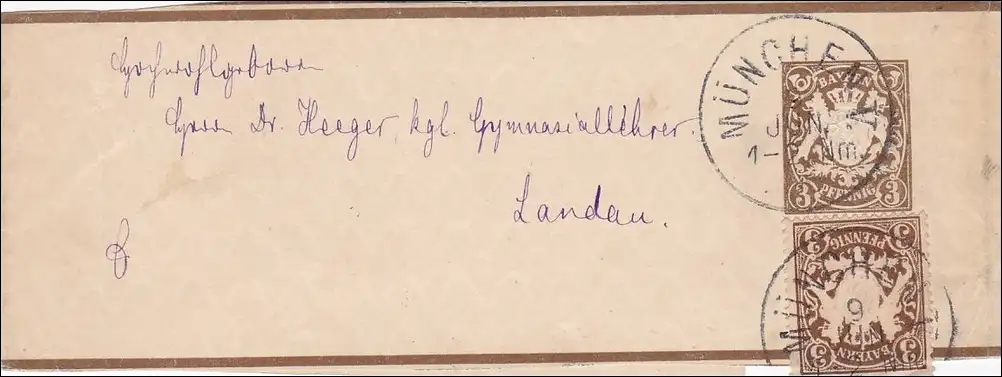 Hochwohlgeboren
Herrn Dr. Heeger, kgl. Gymnasiallehrer.
Landau.
MÜNCHEN
JUN.
1- Nm.
BAYERN
3 PFENNIG 3
MÜNCH
9
JUN
3 PFENNIG 3
3 BAYERN 3